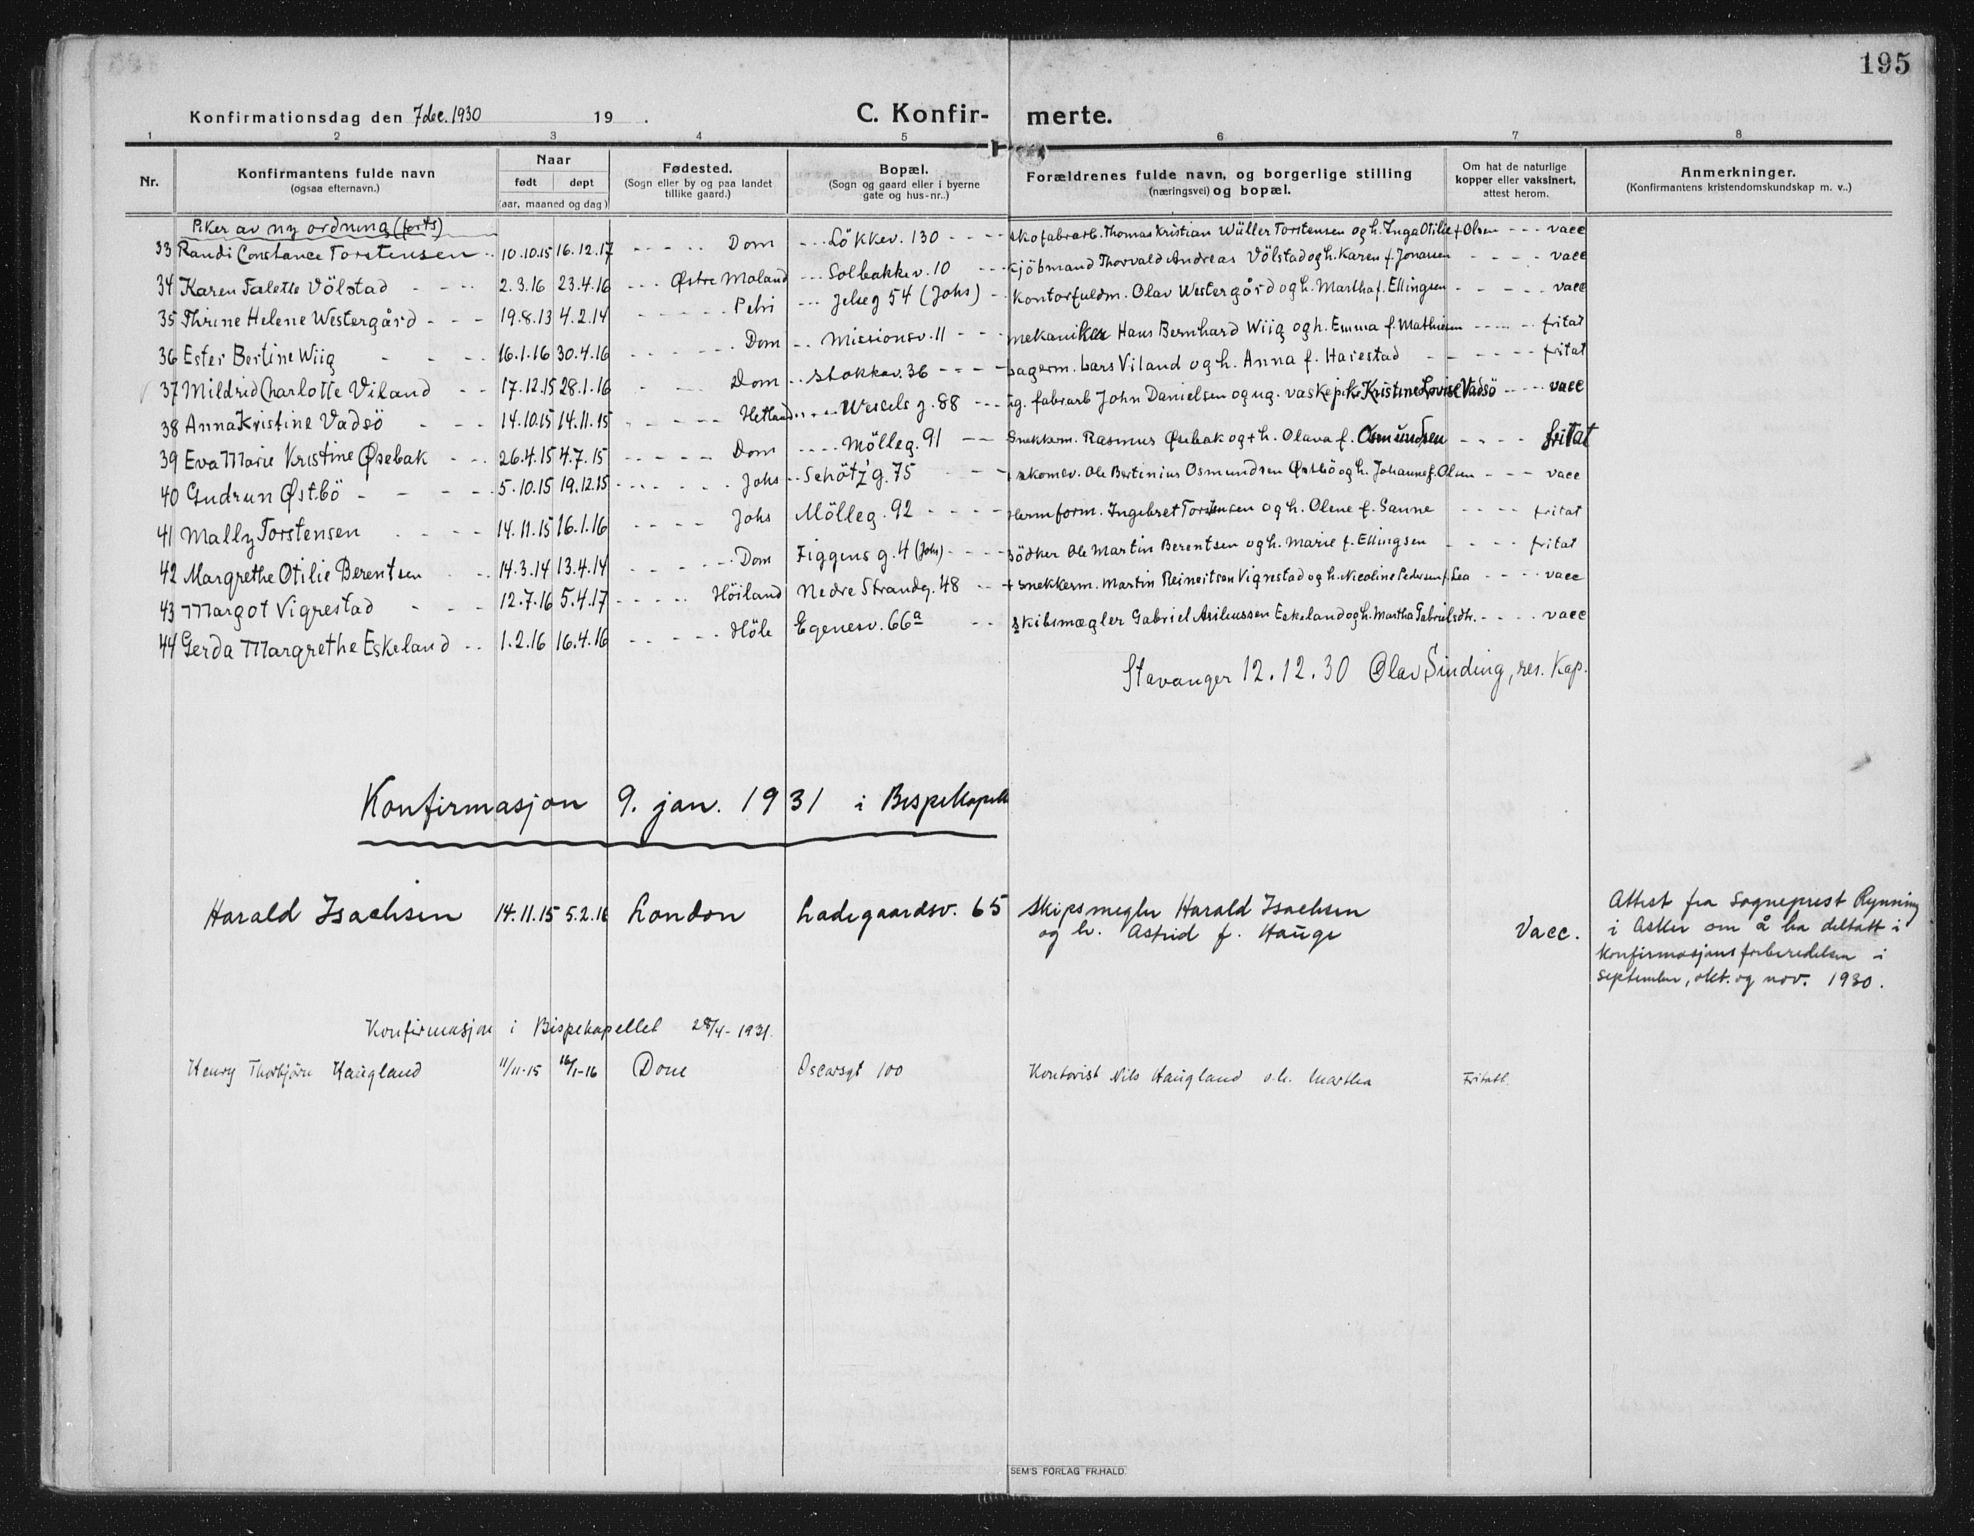 195
Konfirmationsdag den 7 dec. 1930 19 .
C. Konfir- merte.
1 2 3 4 5 6 7 8
Nr. Konfirmantens fulde navn (ogsaa efternavn.) Naar født døpt (aar, maaned og dag) Fødested. (Sogn eller by og paa landet tillike gaard.) Bopæl. (Sogn og gaard eller i byerne gate og hus-nr..) Forældrenes fulde navn, og borgerlige stilling (næringsvei) og bopæl. Om hat de naturlige kopper eller vaksinert, attest herom. Anmerkninger. (Konfirmantens kristendomskundskap m. v..)
Piker av ny ordning (forts)
33 Randi Constance Torstensen 10.10.15 16.12.17 Dom Lökkev. 130 skofabrarb. Thomas Kristian Wüller Torstensen og h. Inga Otilie f Olsen vacc
34 Karen Talette Völstad 2.3.16 23.4.16 Østre Moland Solbakkev. 10 kjöbmand Thorvald Andreas Völstad og h. Karen f. Jonassen vacc
35 Thrine Helene Westergård 19.8.13 4.2.14 Petri Jelseg 54 (Johs) kontorfuldm. Olav Westergård og h. Martha f. Ellingsen vacc
36 Ester Bertine Wiig 16.1.16 30.4.16 Dom Missionsv. 11 mekaniker Hans Bernhard Wiig og h. Emma f. Mathiesen fritat
37 Mildred Charlotte Viland 17.12.15 28.1.16 Dom Stokkav. 36 Lagerm. Lars Viland og h. Anna f. Harestad fritat
38 Anna Kristine Vadsö 14.10.15 14.11.15 Hetland Wesselsg. 88 ug. fabrarb John Danielsen og ug. vaskepike Kristine Lovise Vadsö vacc
39 Eva Marie Kristine Øsebak 26.4.15 4.7.15 Dom Mölleg. 91 Snekkerm. Rasmus Øsebak og + h. Olava f. Osmundsen fritat
40 Gudrun Østbö 5.10.15 19.12.15 Johs Schötz' g. 75 + skomv. Ole Bertinius Osmundsen Østbö og h. Johanne f. Olsen vacc
41 Mally Torstensen 14.11.15 16.1.16 Johs Mölleg. 92 Hermform. Ingebret Torstensen og h. Olene f. Sanne fritat
42 Margrethe Otilie Berentsen 14.3.14 13.4.14 Dom Figgens g. 4 (Johs) Bödker Ole Martin Berentsen og h. Marie f. Ellingsen fritat
43 Margot Vigrestad 12.7.16 5.4.17 Höiland Nedre Strandg. 48 + snekkerm. Martin Reinertsen Vigrestad og h. Nicoline Pedersen f. Lea vacc
44 Gerda Margrethe Eskeland 1.2.16 16.4.16 Höle Egenesv. 66a skibsmægler Gabriel Asslaussen Eskeland og h. Martha Gabrielsdtr. vacc
Stavanger 12.12.30 Olav Sinding, res. Kap.
Konfirmasjon 9. jan. 1931 i Bispekapell
Harald Isachsen 14.11.15 5.2.16 London Ladegaardsv. 65 Skipsmegler Harald Isachsen
og h. Astrid f. Hauge Vacc.
Attest fra sogneprest Rynning
i Asker om å ha deltatt i
konfirmasjonsforberedelsen i
september, okt. og nov. 1930.
Konfirmasjon i Bispekapellet 28/4-1931.
Henry Thorbjörn Haugland 11/11-15 16/1-16 Dom Oscarsgt 100 Kontorist Nils Haugland o.h. Martha Fritatt.
SEM'S FORLAG FR.HALD.